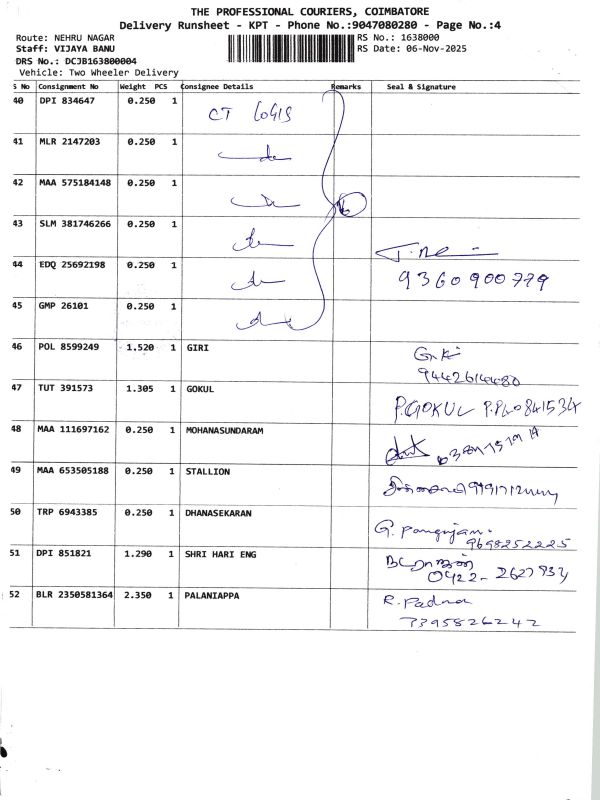 THE PROFESSIONAL COURIERS, COIMBATORE
Delivery Runsheet - KPT - Phone No.:9047080280 - Page No.:4
Route: NEHRU NAGAR
RS No.: 1638000
Staff: VIJAYA BANU
RS Date: 06-Nov-2025
DRS No.: DCJB163800004
Vehicle: Two Wheeler Delivery
S No Consignment No Weight PCS Consignee Details Remarks Seal & Signature
40 DPI 834647 0.250 1 CT
41 MLR 2147203 0.250 1
42 MAA 575184148 0.250 1
43 SLM 381746266 0.250 1
44 EDQ 25692198 0.250 1
9360900779
45 GMP 26101 0.250 1
46 POL 8599249 1.520 1 GIRI
47 TUT 391573 1.305 1 GOKUL
P.GOKUL
48 MAA 111697162 0.250 1 MOHANASUNDARAM
49 MAA 653505188 0.250 1 STALLION
50 TRP 6943385 0.250 1 DHANASEKARAN
9698252225
51 DPI 851821 1.290 1 SHRI HARI ENG
52 BLR 2350581364 2.350 1 PALANIAPPA
R. Padma
7395826242